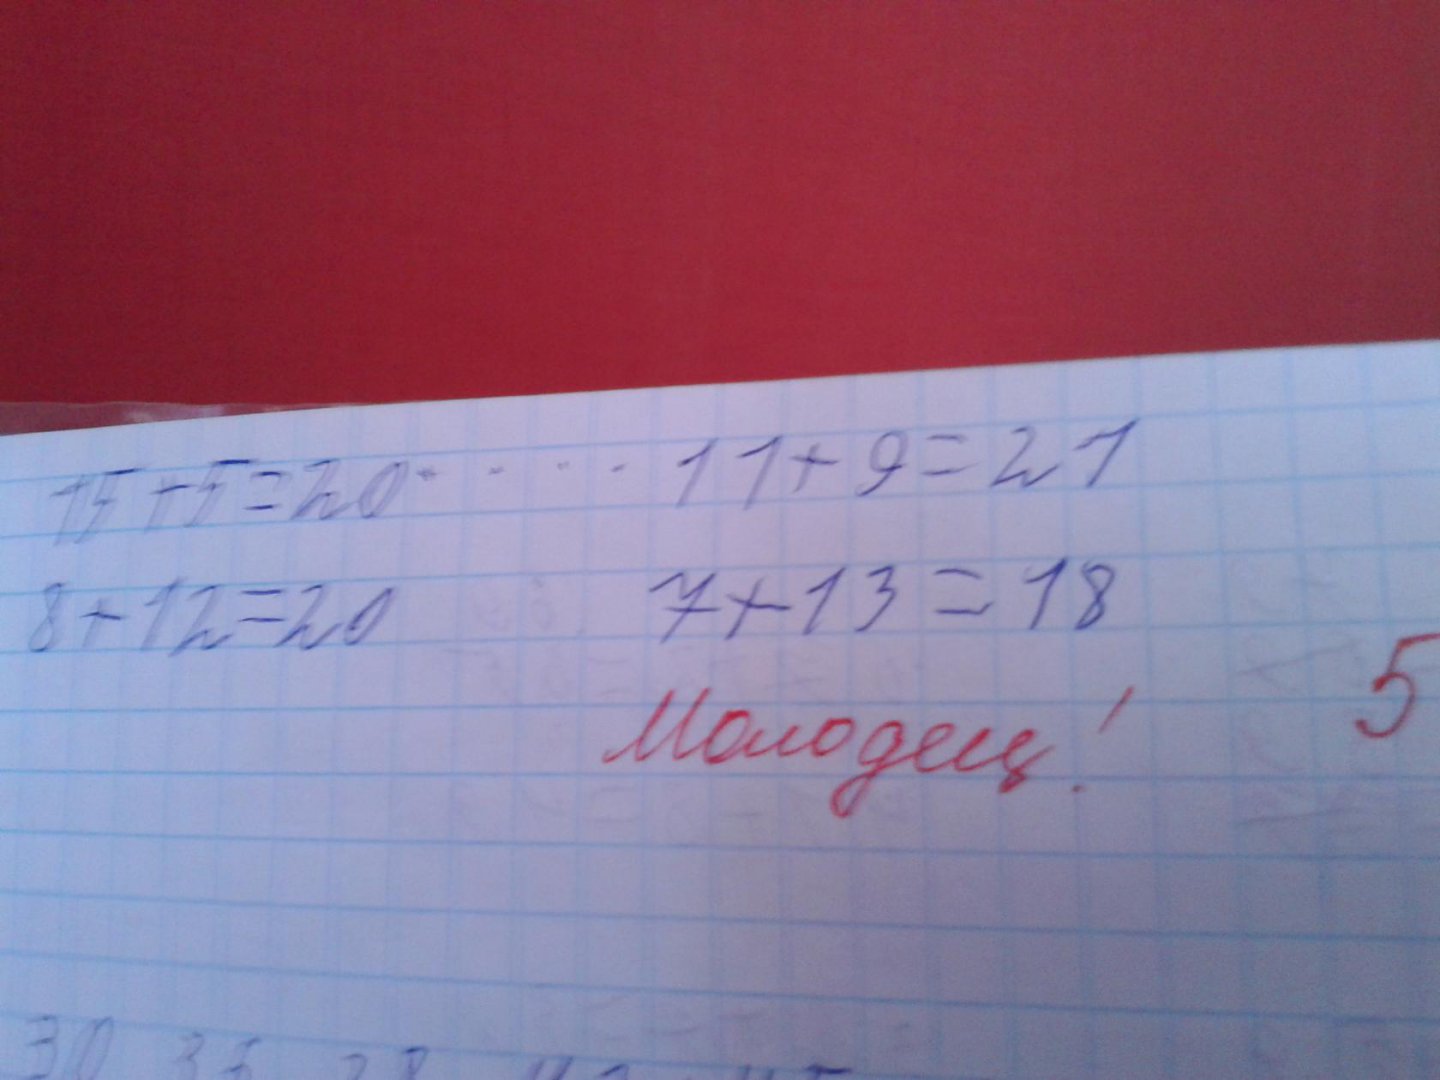 15+5=20 . . . . 11+9=21
8+12=20 7+13=18
Молодец! 5
30